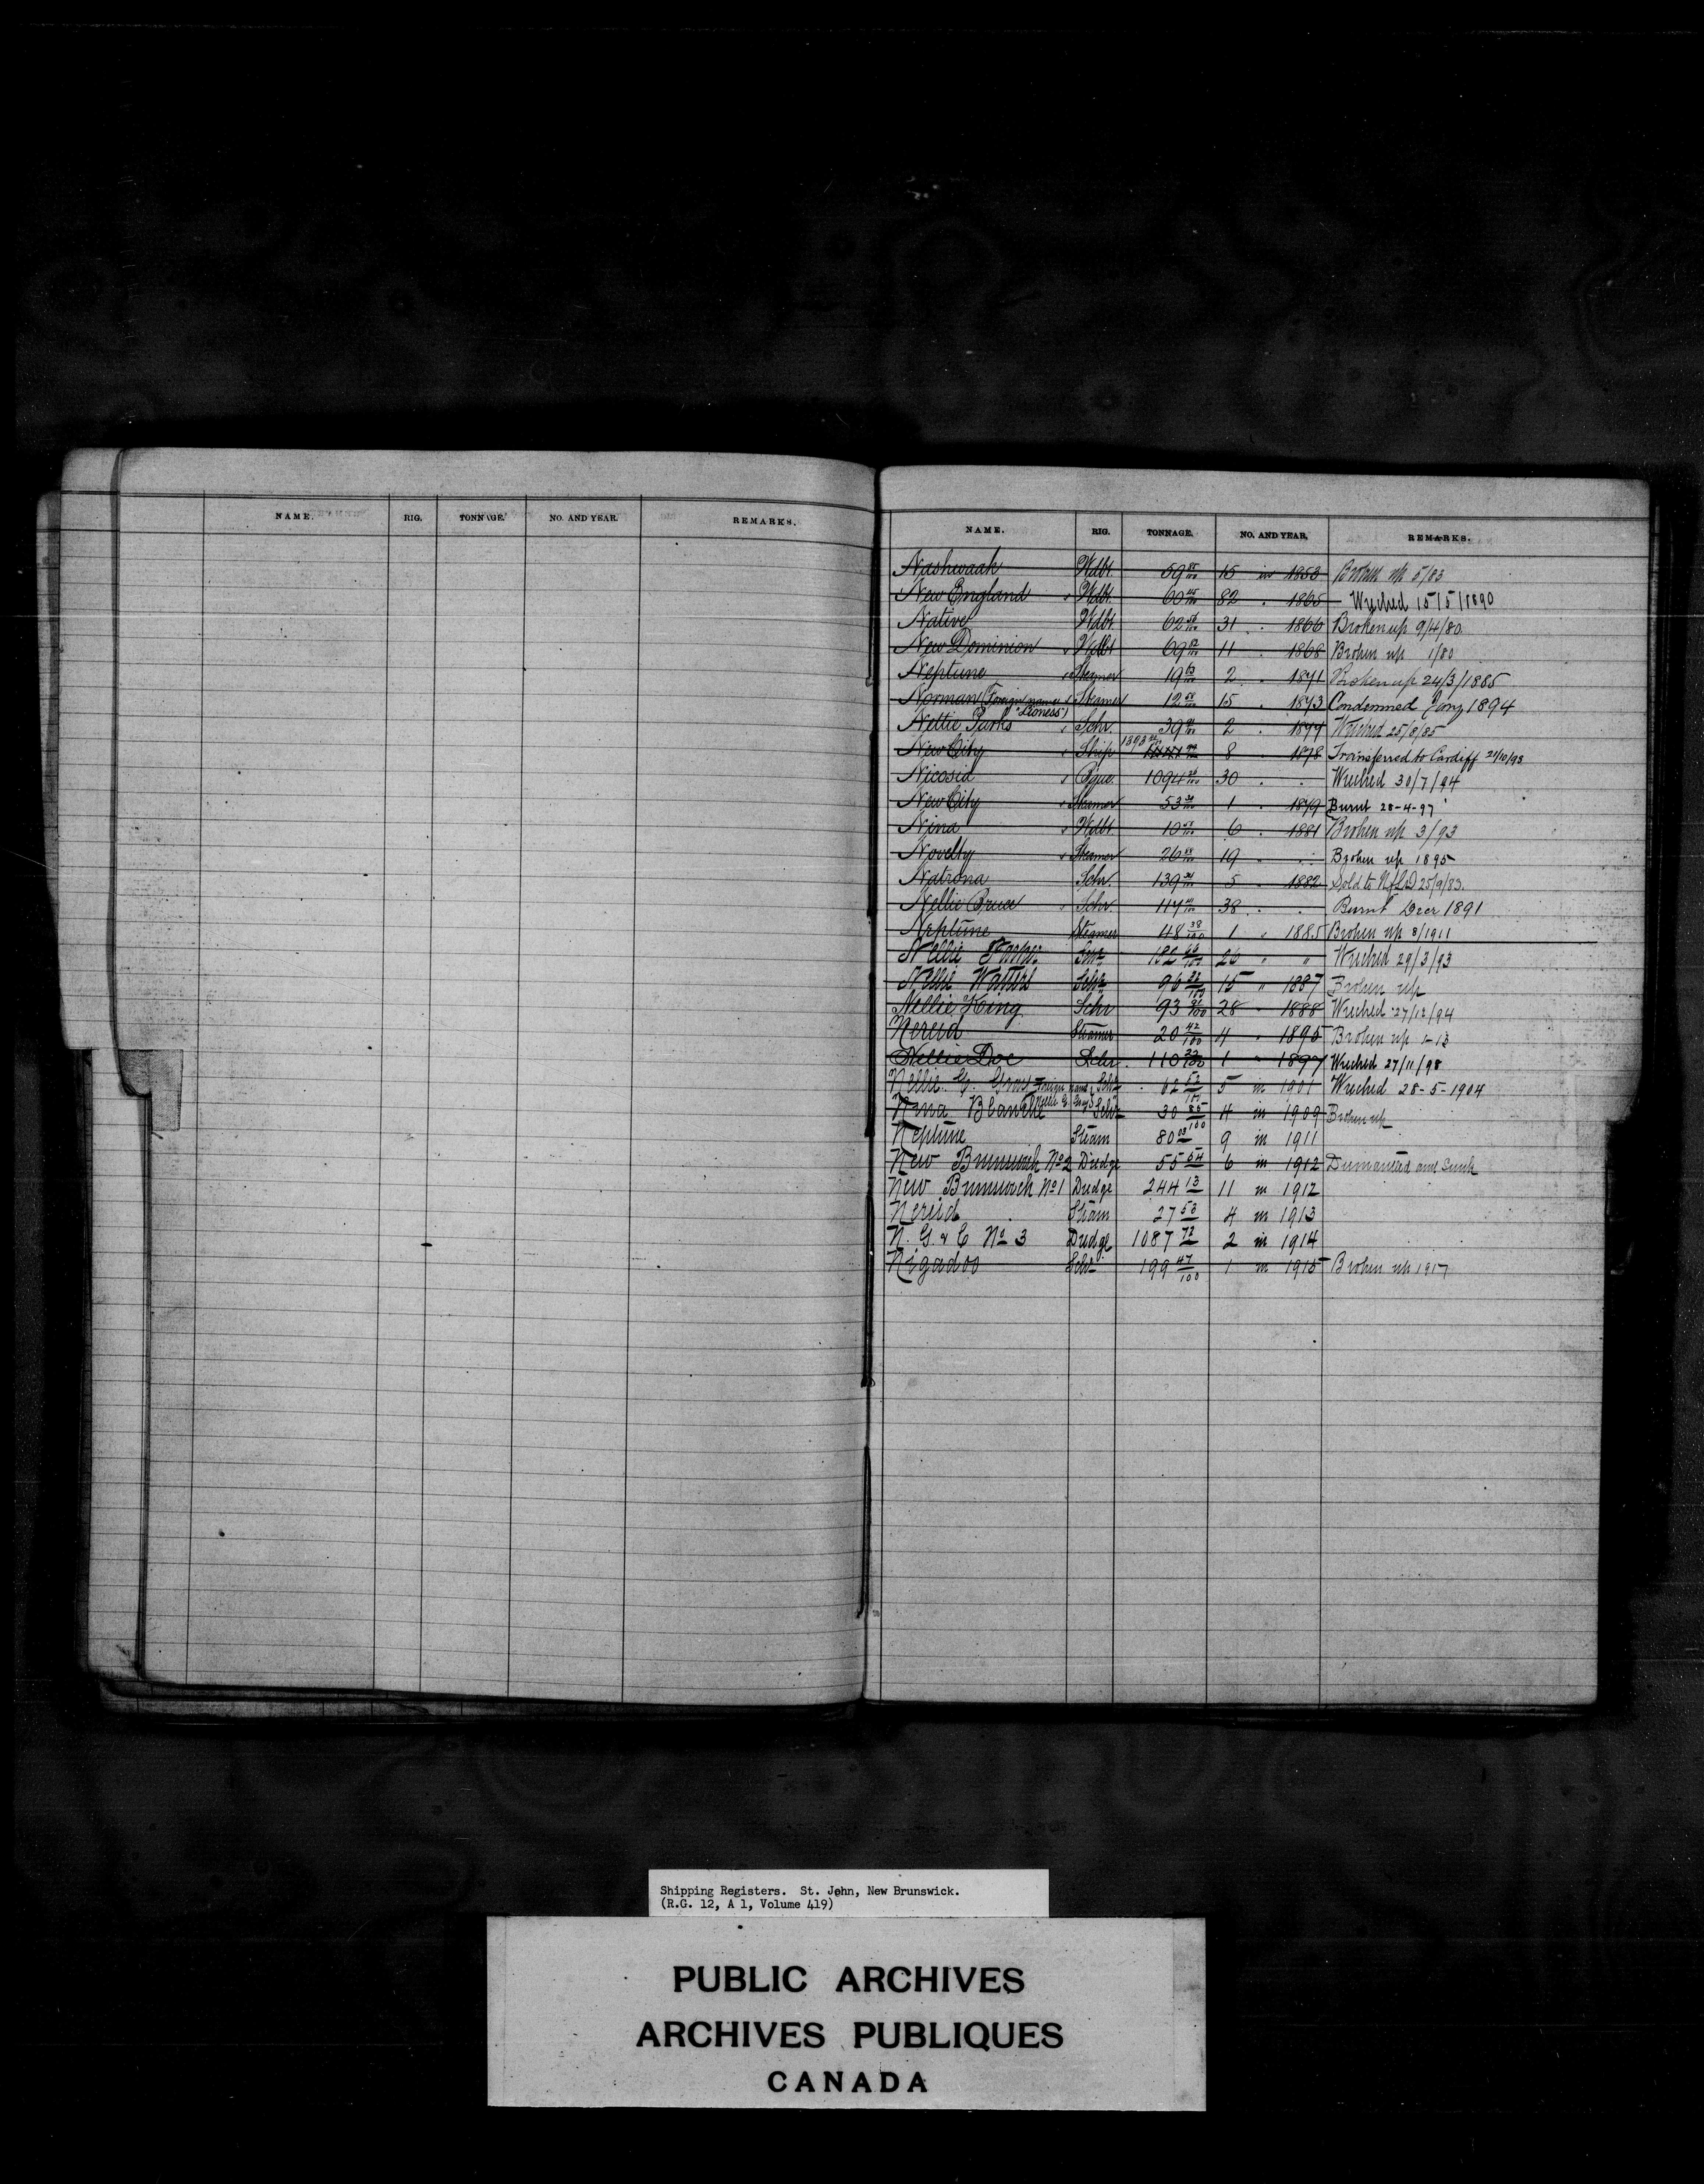 NAME. RIG. TONNAGE. NO. AND YEAR. REMARKS.
NAME. RIG. TONNAGE. NO. AND YEAR. REMARKS.
Nashwaak Wdbt. 59 15 in 1853 Broken up 5/83
New England Wdbt. 60 82 . 1865 Wrecked 15/5/1890
Native Wdbt. 62 31 . 1866 Broken up 9/4/80
New Dominion Wdbt 69 11 . 1868 Broken up 1/80
Neptune Steamer 19 2 . 1871 Broken up 24/3/1885
Norman (Foreign name Steamer 12 15 . 1873 Condemned Jany 1894
"Lioness")
Nettie Parks Schr. 39 2 . 1877 Wrecked 25/8/85
New City Ship 1393 8 . 1878 Transferred to Cardiff 21/10/93
Nicosia Bque. 1094 30 . . Wrecked 30/7/94
New City Steamer 53 1 . 1879 Burnt 28-4-97
Nina Wdbt. 10 6 . 1881 Broken up 3/93
Novelty Steamer 26 19 " . Broken up 1895
Natrona Schr. 139 5 . 1882 Sold to NfLD 25/9/83.
Nellie Bruce Schr. 117 38 . . Burnt Decr 1891
Neptune Steamer 48 38/100 1 " 1885 Broken up 8/1911
Nellie Schr 182 26 " " Wrecked 29/3/93
Nellie Watters Schr 96 15 " 1887 Broken up
Nellie King Schr 93 28 " 1888 Wrecked 27/12/94
Nereid Steamer 20 42/100 11 " 1895 Broken up 1-13
Nellie Doe Schr. 110 1 " 1897 Wrecked 27/11/98
Nellie G. Foreign name Schr 62 52/100 5 in 1901 Wrecked 28-5-1904
Nellie G. Gray
Nina Blanche Schr 30 85/100 4 in 1909 Broken up
Neptune Steam 80 03 9 in 1911
New Brunswick No 2 Dredge 55 54 6 in 1912 Dismantled and Sunk
New Brunswick No 1 Dredge 244 13 11 in 1912
Nereid Steam 27 50 4 in 1913
N. G. & C No 3 Dredge 1087 72 2 in 1914
Nigadoo Schr 199 47/100 1 in 1915 Broken up 1917
Shipping Registers. St. John, New Brunswick.
(R.G. 12, A 1, Volume 419)
PUBLIC ARCHIVES
ARCHIVES PUBLIQUES
CANADA